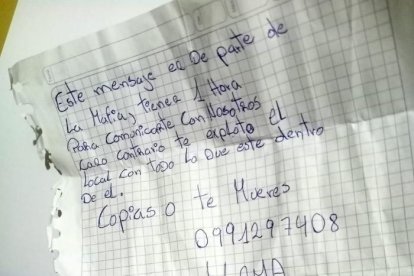 Este mensaje es De parte de
La Mafia, tienes 1 Hora
Para comunicarte con nosotros
caso contrario te exploto el
Local con todo lo que este dentro
De el.
Copias o te Mueres
0991297408